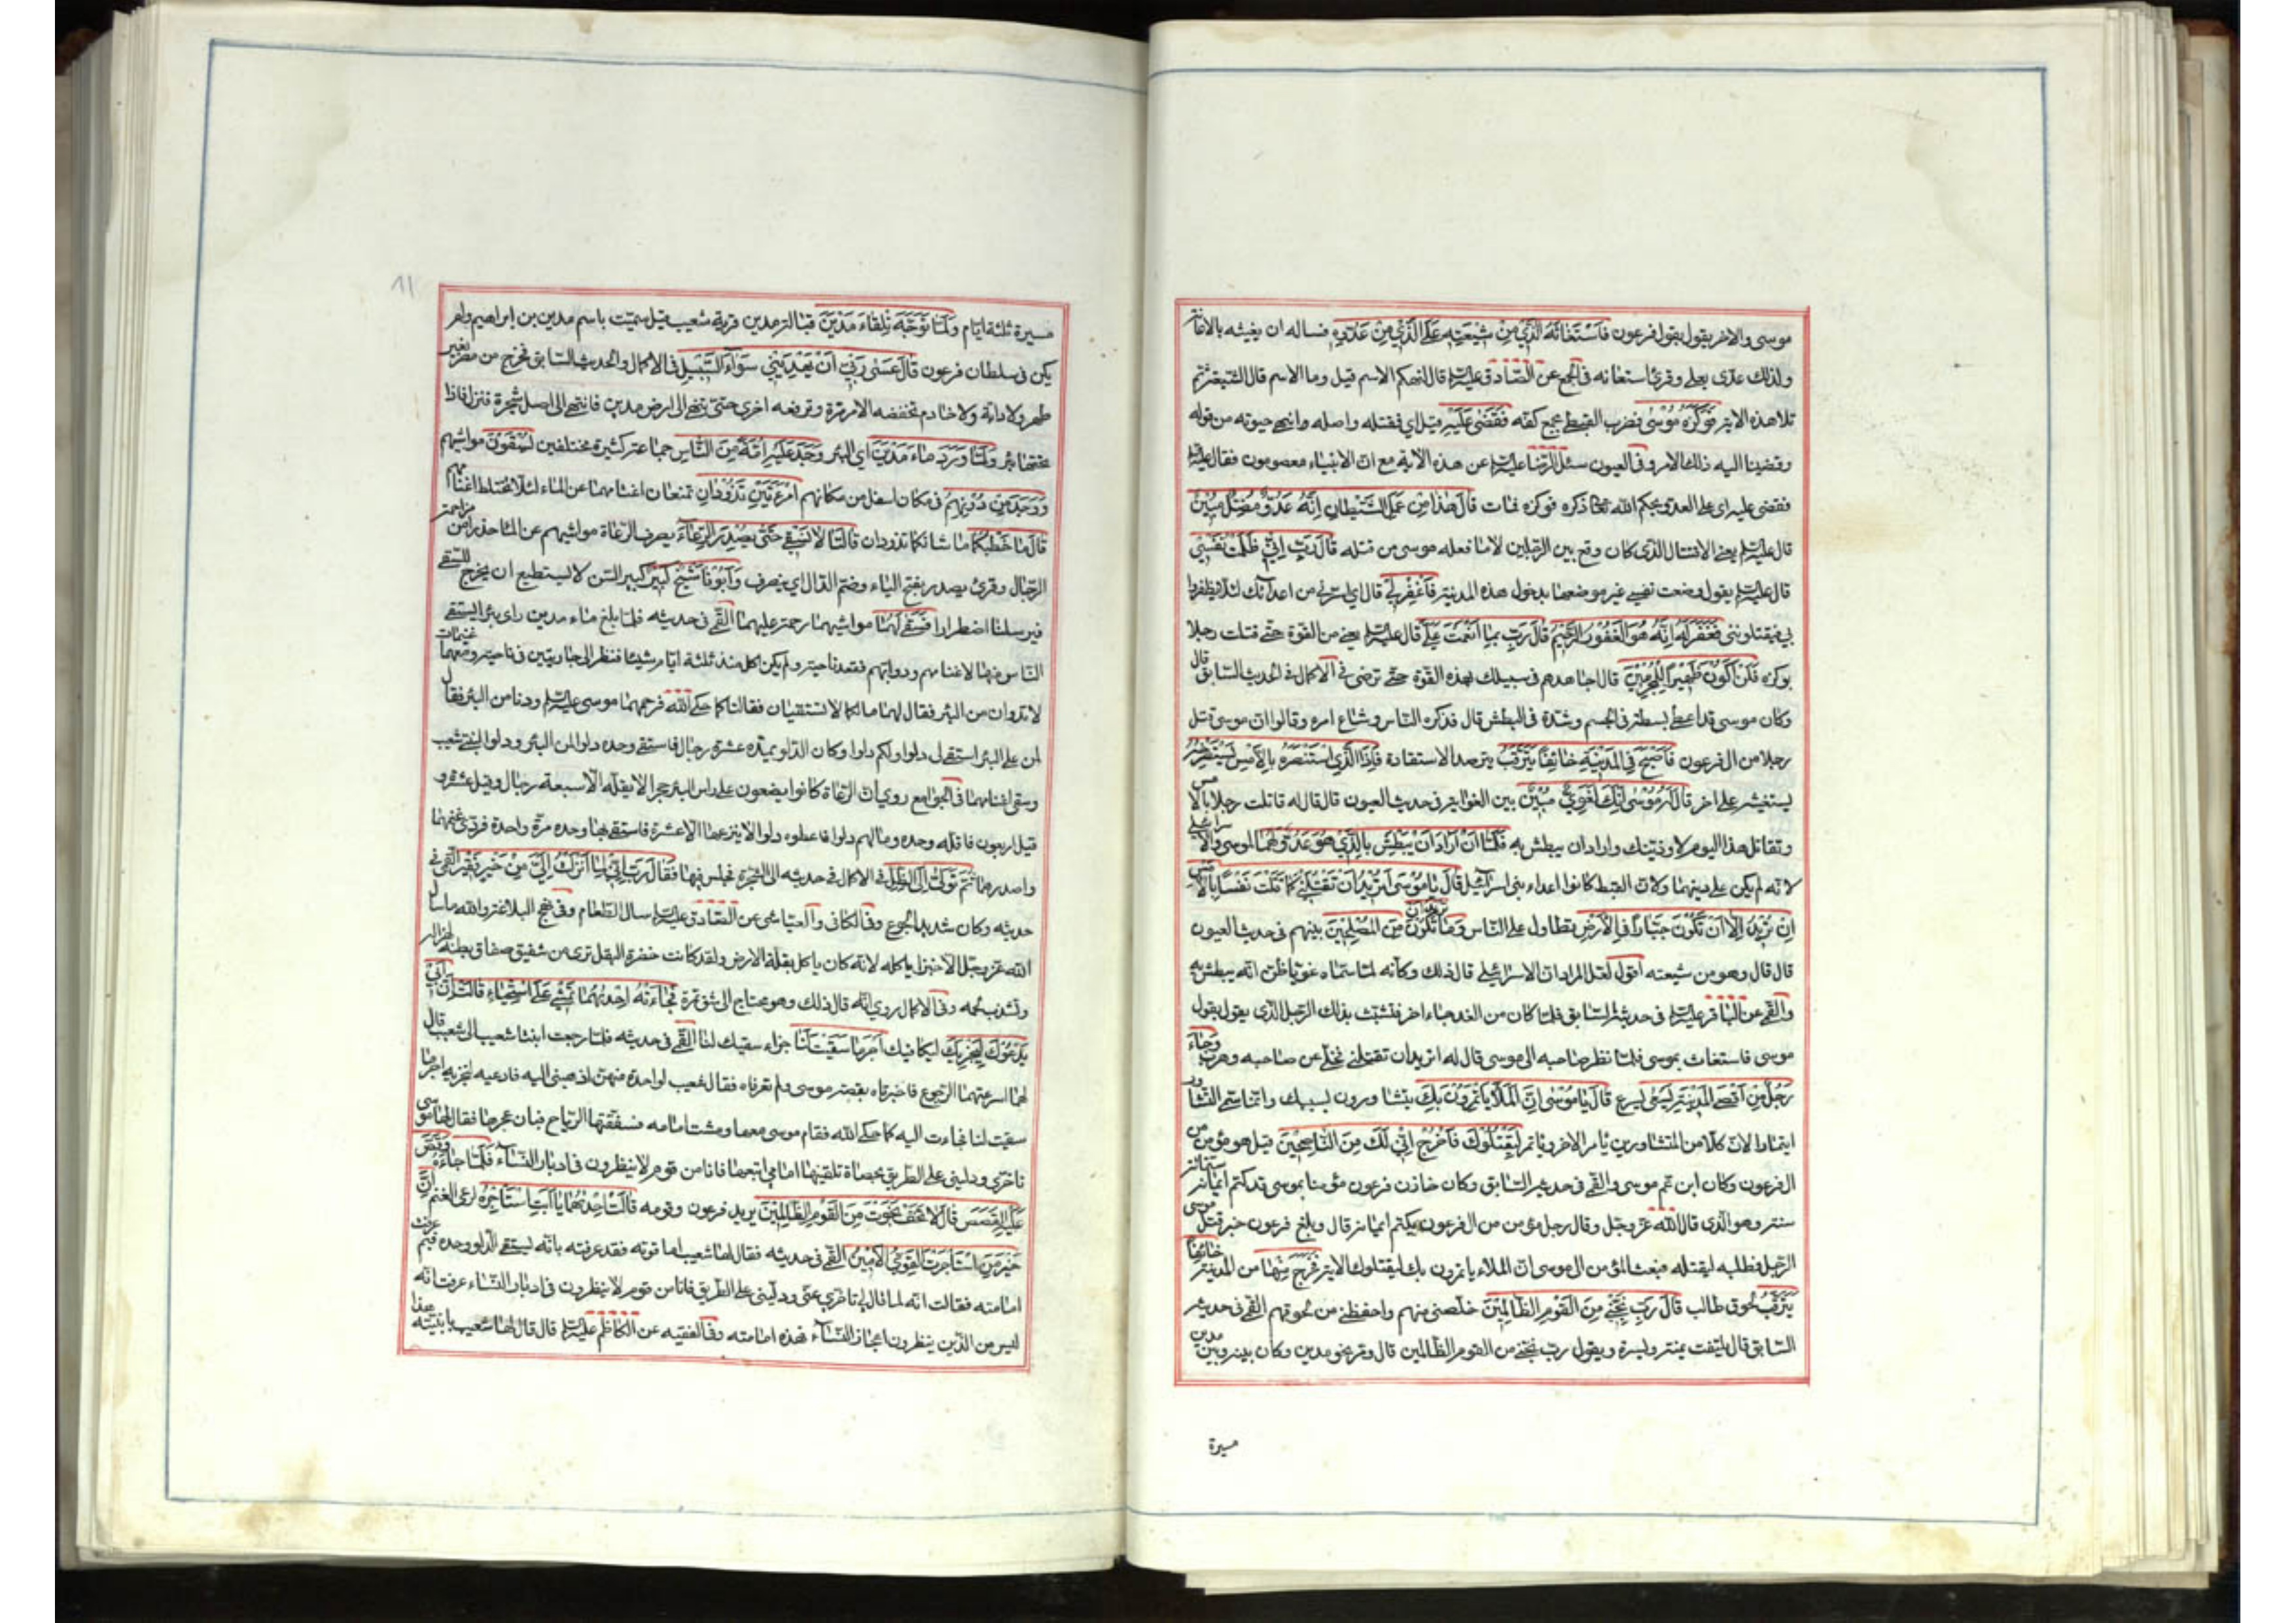 موسى والاخر يقول بقول فرعون فَاسْتَغَاثَهُ الَّذي مِنْ شيعَتِهِ عَلَى الَّذي مِنْ عَدُوِّهِ فساله ان يغيثه بالاعانة
ولذلك عدّى بعلى وقرئ استعانه في المجمع عن الصّادق عليه السلام قال ليهنكم الاسم قيل وما الاسم قال الشيعة ثم
تلا هذه الاية فَوَكَزَهُ مُوسٰى فضرب القبطي بجمع كفّه فَقَضٰى عَلَيْهِ قيل اي فقتله واصله وانهى حيوته من قوله
وقضينا اليه ذلك الامر وفي العيون سئل الرّضا عليه السلام عن هذه الاية مع انّ الانبياء معصومون فقال عليه السلام
فقضى عليه اي على العدو بحكم الله تعالى ذكره فوكزه فمات قالَ هٰذا مِنْ عَمَلِ الشَّيْطانِ اِنَّهُ عَدُوٌّ مُضِلٌّ مُبينٌ
قال عليه السلام يعني الاقتتال الذى كان وقع بين الرّجلين لا ما فعله موسى من قتله قالَ رَبِّ اِنّي ظَلَمْتُ نَفْسي
قال عليه السلام يقول وضعت نفسي غير موضعها بدخول هذه المدينة فَاغْفِرْ لي قال اي استرني من اعدائك لئلا يظفروا
بي فيقتلوننى فَغَفَرَ لَهُ اِنَّهُ هُوَ الْغَفُورُ الرَّحيمُ قالَ رَبِّ بِما اَنْعَمْتَ عَلَيَّ قال عليه السلام يعني من القوّة حتّى قتلت رجلا
بوكزه فَلَنْ اَكُونَ ظَهيراً لِلْمُجْرِمينَ قال اجاهدهم في سبيلك بهذه القوّة حتّى ترضى في الاكمال في الحديث السّابق قال
وكان موسى قد اعطي بسطة في الجسم وشدّة في البطش قال فذكره النّاس وشاع امره وقالوا انّ موسى قتل
رجلا من ال فرعون فَاَصْبَحَ فِي الْمَدينَةِ خائِفاً يَتَرَقَّبُ يترصد الاستقادة فَاِذَا الَّذي اسْتَنْصَرَهُ بِالْاَمْسِ يَسْتَصْرِخُهُ
يستغيثه على اخر قالَ لَهُ مُوسٰى اِنَّكَ لَغَوِيٌّ مُبينٌ بين الغواية في حديث العيون قال قال له قاتلت رجلا بالامس
وتقاتل هذا اليوم لاوذينّك واراد ان يبطش به فَلَمّا اَنْ اَرادَ اَنْ يَبْطِشَ بِالَّذي هُوَ عَدُوٌّ لَهُما لموسى والاسرائيلي
لانه لم يكن على دينهما ولانّ القبط كانوا اعداء بنى اسرائيل قالَ يا مُوسٰى اَتُريدُ اَنْ تَقْتُلَني كَما قَتَلْتَ نَفْساً بِالْاَمْسِ
اِنْ تُريدُ اِلّا اَنْ تَكُونَ جَبّاراً فِي الْاَرْضِ تطاول على النّاس وَما تُريدُ اَنْ تَكُونَ مِنَ الْمُصْلِحينَ بينهم في حديث العيون
قال قال وهو من شيعته اقول لعلّ المراد انّ الاسرائيلي قال ذلك وكانّه لمّا سمّاه غويّا ظنّ انّه يبطش به
والقمّي عن الباقر عليه السلام في حديثه السّابق فلمّا كان من الغد جاء اخر فتشبّث بذلك الرّجل الذى يقول بقول
موسى فاستغاث بموسى فلمّا نظر صاحبه الى موسى قال له اتريد ان تقتلنى فخلّى عن صاحبه وهرب وَجاءَ
رَجُلٌ مِنْ اَقْصَى الْمَدينَةِ يَسْعٰى يسرع قالَ يا مُوسٰى اِنَّ الْمَلَاَ يَاْتَمِرُونَ بِكَ يتشاورون بسببك وانّما سمّي التّشاور
ايتمارا لانّ كلّا من المتشاورين يامر الاخر وياتمر لِيَقْتُلُوكَ فَاخْرُجْ اِنّي لَكَ مِنَ النّاصِحينَ قيل هو مؤمن من
ال فرعون وكان ابن عم موسى والقمّي في حديثه السّابق وكان خازن فرعون مؤمنا بموسى قد كتم ايمانه ستمائة
سنة وهو الّذى قال الله عزّ وجلّ وقال رجل مؤمن من ال فرعون يكتم ايمانه قال وبلغ فرعون خبر قتل موسى
الرّجل فطلبه ليقتله فبعث المؤمن الى موسى انّ الملاء ياتمرون بك ليقتلوك الاية فَخَرَجَ مِنْها من المدينة خائِفاً
يَتَرَقَّبُ لحوق طالب قالَ رَبِّ نَجِّني مِنَ الْقَوْمِ الظّالِمينَ خلّصنى منهم واحفظنى من لحوقهم القمّي في حديثه
السّابق قال يلتفت يمنة ويسرة ويقول ربّ نجّنى من القوم الظّالمين قال ومرّ نحو مدين وكان بينه وبين مدين
مسيرة
مسيرة ثلثة ايّام وَلَمّا تَوَجَّهَ تِلْقاءَ مَدْيَنَ قبالة مدين قرية شعيب قيل سمّيت باسم مدين بن ابراهيم ولم
يكن في سلطان فرعون قالَ عَسٰى رَبّي اَنْ يَهْدِيَني سَواءَ السَّبيلِ في الاكمال والحديث السّابق فخرج من مصر بغير
ظهر ولا دابّة ولا خادم تخفضه الارض مرّة وترفعه اخرى حتّى انتهى الى ارض مدين فانتهى الى اصل شجرة فنزل فاذا
تحتها بئر وَلَمّا وَرَدَ ماءَ مَدْيَنَ اى البئر وَجَدَ عَلَيْهِ اُمَّةً مِنَ النّاسِ جماعة كثيرة مختلفين يَسْقُونَ مواشيهم
وَوَجَدَ مِنْ دُونِهِمُ في مكان اسفل من مكانهم امْرَاَتَيْنِ تَذُودانِ تمنعان اغنامهما عن الماء لئلّا تختلط اغنامهم
قالَ ما خَطْبُكُما ما شانكما تذودان قالَتا لا نَسْقي حَتّى يُصْدِرَ الرِّعاءُ يصرف الرّعاة مواشيهم عن الماء حذرا من مزاحمة
الرّجال وقرئ يصدر بفتح الياء وضمّ الدّال اي ينصرف وَاَبُونا شَيْخٌ كَبيرٌ كبير السّن لا يستطيع ان يخرج للسّقي
فيرسلنا اضطرارا فَسَقٰى لَهُما مواشيهما رحمة عليهما القمّي في حديثه فلمّا بلغ ماء مدين راى بئرا يستقي
النّاس منها لاغنامهم ودوابّهم فقعد ناحية ولم يكن اكل منذ ثلثة ايّام شيئا فنظر الى جاريتين في ناحية ومعهما غنيمات
لا تدنوان من البئر فقال لهما ما لكما لا تستقيان فقالتا كما حكى الله فرحمهما موسى عليه السلام ودنا من البئر فقال
لمن على البئر استقي لي دلوا ولكم دلوا وكان الدّلو يمدّه عشرة رجال فاستقى وحده دلوا لمن البئر ودلوا لبنتي شعيب
وسقى اغنامهما في الجوامع روي انّ الرّعاة كانوا يضعون على راس البئر حجرا لا يقلّه الّا سبعة رجال وقيل عشرة و
قيل اربعون فاقلّه وحده وسالهم دلوا فاعطوه دلوا لا ينزعها الّا عشرة فاستقى بها وحده مرّة واحدة فروّى غنمهما
واصدرهما ثُمَّ تَوَلّٰى اِلَى الظِّلِّ في الاكمال في حديثه الى الشّجرة فجلس فيها فَقالَ رَبِّ اِنّي لِما اَنْزَلْتَ اِلَيَّ مِنْ خَيْرٍ فَقيرٌ القمّي في
حديثه وكان شديد الجوع وفي الكافي والعيّاشى عن الصّادق عليه السلام سال الطّعام وفي نهج البلاغة والله ما سال
الله عزّ وجلّ الّا خبزا ياكله لانّه كان ياكل بقلة الارض ولقد كانت خضرة البقل ترى من شفيف صفاق بطنه لهزاله
وتشذب لحمه وفي الاكمال روي انّه قال ذلك وهو محتاج الى شقّ تمرة فَجاءَتْهُ اِحْدٰيهُما تَمْشي عَلَى اسْتِحْياءٍ قالَتْ اِنَّ اَبي
يَدْعُوكَ لِيَجْزِيَكَ ليكافيك اَجْرَ ما سَقَيْتَ لَنا جزاء سقيك لنا القمّي في حديثه فلمّا رجعت ابنتا شعيب الى شعيب قال
لهما اسرعتما الرّجوع فاخبرتاه بقصّة موسى ولم تعرفاه فقال شعيب لواحدة منهنّ اذهبى اليه فادعيه لنجزيه اجر ما
سقيت لنا فجاءت اليه كما حكى الله فقام موسى معها ومشت امامه فسفّقتها الرّياح فبان عجزها فقال لها موسى
تاخّري ودلينى على الطّريق بحصاة تلقينها امامى اتبعها فانا من قوم لا ينظرون في ادبار النّساء فَلَمّا جاءَهُ وَقَصَّ
عَلَيْهِ الْقَصَصَ قالَ لا تَخَفْ نَجَوْتَ مِنَ الْقَوْمِ الظّالِمينَ يريد فرعون وقومه قالَتْ اِحْدٰيهُما يا اَبَتِ اسْتَاْجِرْهُ لرعي الغنم اِنَّ
خَيْرَ مَنِ اسْتَاْجَرْتَ الْقَوِيُّ الْاَمينُ القمّي في حديثه فقال لها شعيب اما قوته فقد عرفته بانّه يستقي الدّلو وحده فبم عرفت
امانته فقالت انّه لما قال لي تاخّري عنّي ودلّينى على الطّريق فانا من قوم لا ينظرون في ادبار النّساء عرفت انّه
ليس من الّذين ينظرون اعجاز النّساء فهذه امانته وفي الفقيه عن الكاظم عليه السلام قال قال لها شعيب يا بنيّة هذا